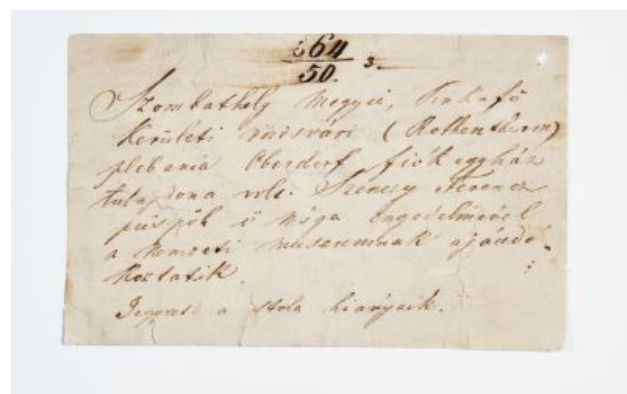 64
50. 3.
Szombathely megyei, Pinkafő
kerületi vörösvári (Rothenthurm)
plebania Oberdorf fiók egyház
tulajdona volt. Szenczy Ferencz
püspök ő
a nemzeti museumnak ajándé-
koztatik.
a stola hiányzik.